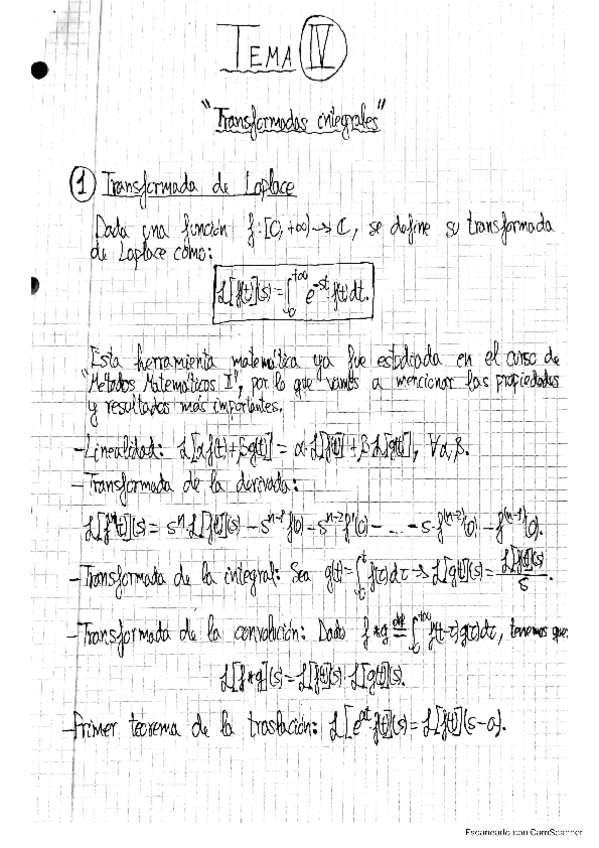 TEMA IV
"Transformadas integrales"
1 Transformada de Laplace
Dada una función f:[0,+∞)→ℂ, se define su transformada
de Laplace como:
ℒ[f(t)](s)=∫₀^{+∞} e^{-st} f(t)dt.
Esta herramienta matemática ya fue estudiada en el curso de
"Métodos Matemáticos I", por lo que vamos a mencionar las propiedades
y resultados más importantes.
-Linealidad: ℒ[αf(t)+βg(t)] = α·ℒ[f(t)]+β·ℒ[g(t)], ∀α,β.
-Transformada de la derivada:
ℒ[fⁿ(t)](s) = sⁿ·ℒ[f(t)](s) - s^{n-1} f(0) - s^{n-2} f'(0) - ... - s·f^{(n-2)}(0) - f^{(n-1)}(0).
-Transformada de la integral: Sea g(t)=∫₀^t f(τ)dτ → ℒ[g(t)](s) = ℒ[f(t)](s)/s.
-Transformada de la convolución: Dado f*g ≝ ∫₀^{+∞} f(t-τ)g(τ)dτ, tenemos que:
ℒ[f*g](s) = ℒ[f(t)](s)·ℒ[g(t)](s).
-Primer teorema de la traslación: ℒ[e^{at}·f(t)](s) = ℒ[f(t)](s-a).
Escaneado con CamScanner